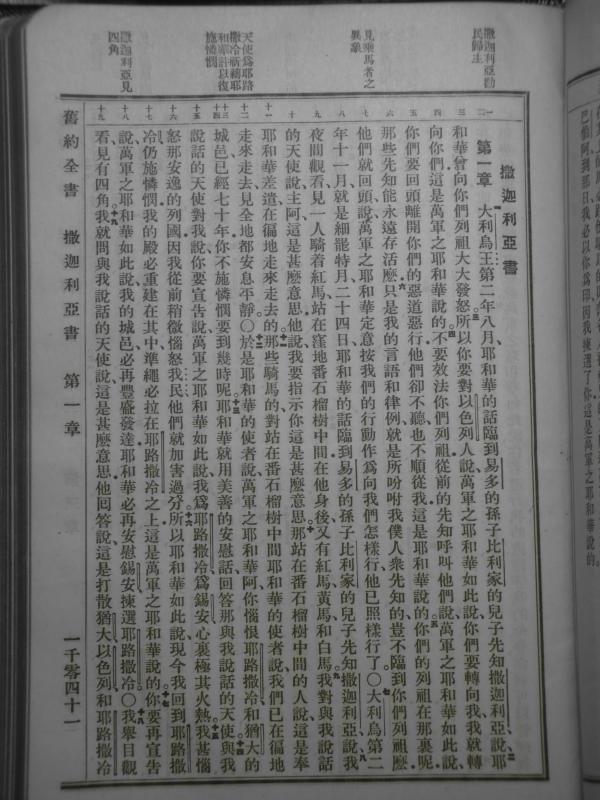 撒迦利亞勸
民歸主
見乘馬者之
異象
天使爲耶路
撒冷祈禱耶
和華許以復
施憐憫
撒迦利亞見
四角
我必以你爲印因我揀選了你這是萬軍之耶和華說的
撒迦利亞書
第一章 大利烏王第二年八月耶和華的話臨到易多的孫子比利家的兒子先知撒迦利亞說耶
和華曾向你們列祖大大發怒所以你要對以色列人說萬軍之耶和華如此說你們要轉向我我就轉
向你們這是萬軍之耶和華說的不要效法你們列祖從前的先知呼叫他們說萬軍之耶和華如此說
你們要回頭離開你們的惡道惡行他們卻不聽也不順從我這是耶和華說的你們的列祖在那裏呢
那些先知能永遠存活麽只是我的言語和律例就是所吩咐我僕人衆先知的豈不臨到你們列祖麽
他們就回頭說萬軍之耶和華定意按我們的行動作爲向我們怎樣行他已照樣行了〇大利烏第二
年十一月就是細罷特月二十四日耶和華的話臨到易多的孫子比利家的兒子先知撒迦利亞說我
夜間觀看見一人騎着紅馬站在窪地番石榴樹中間在他身後又有紅馬黃馬和白馬我對與我說話
的天使說主阿這是甚麽意思他說我要指示你這是甚麽意思那站在番石榴樹中間的人說這是奉
耶和華差遣在徧地走來走去的那些騎馬的對站在番石榴樹中間耶和華的使者說我們已在徧地
走來走去見全地都安息平靜〇於是耶和華的使者說萬軍之耶和華阿你惱恨耶路撒冷和猶大的
城邑已經七十年你不施憐憫要到幾時呢耶和華就用美善的安慰話回答那與我說話的天使與我
說話的天使對我說你要宣告說萬軍之耶和華如此說我爲耶路撒冷爲錫安心裏極其火熱我甚惱
怒那安逸的列國因我從前稍微惱怒我民他們就加害過分所以耶和華如此說現今我回到耶路撒
冷仍施憐憫我的殿必重建在其中準繩必拉在耶路撒冷之上這是萬軍之耶和華說的你要再宣告
說萬軍之耶和華如此說我的城邑必再豐盛發達耶和華必再安慰錫安揀選耶路撒冷〇我舉目觀
看見有四角我就問與我說話的天使說這是甚麽意思他回答說這是打散猶大以色列和耶路撒冷
舊約全書 撒迦利亞書 第一章 一千零四十一